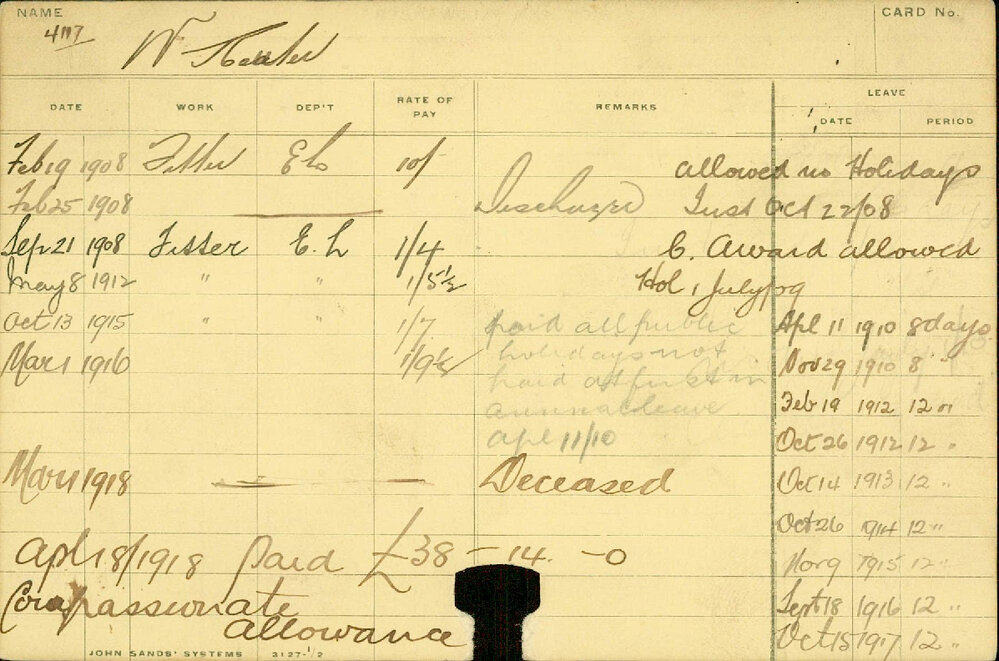 NAME
CARD No.
4117 W
DATE WORK DEP'T RATE OF PAY REMARKS LEAVE
DATE PERIOD
Feb 19 1908 Fitter E L 10/ allowed no Holidays
Feb 25 1908 Discharged Inst Oct 22/08
Sep 21 1908 Fitter E. L 1/4 C. Award allowed
May 8 1912 " " 1/5½ Hol, July/09
Oct 13 1915 " " 1/7 paid all public Apl 11 1910 8 days
Mar 1 1916 1/9½ holidays not Nov 29 1910 8 "
paid at first in
annual leave Feb 19 1912 12 "
Apl 11/10 Oct 26 1912 12 "
Mar 1 1918 Deceased Oct 14 1913 12 "
Oct 26 1914 12 "
Apl 18/1918 Paid £38 - 14. - 0 Nov 9 1915 12 "
Compassionate Sept 18 1916 12 "
allowance Oct 15 1917 12 "
JOHN SANDS' SYSTEMS 3127-½